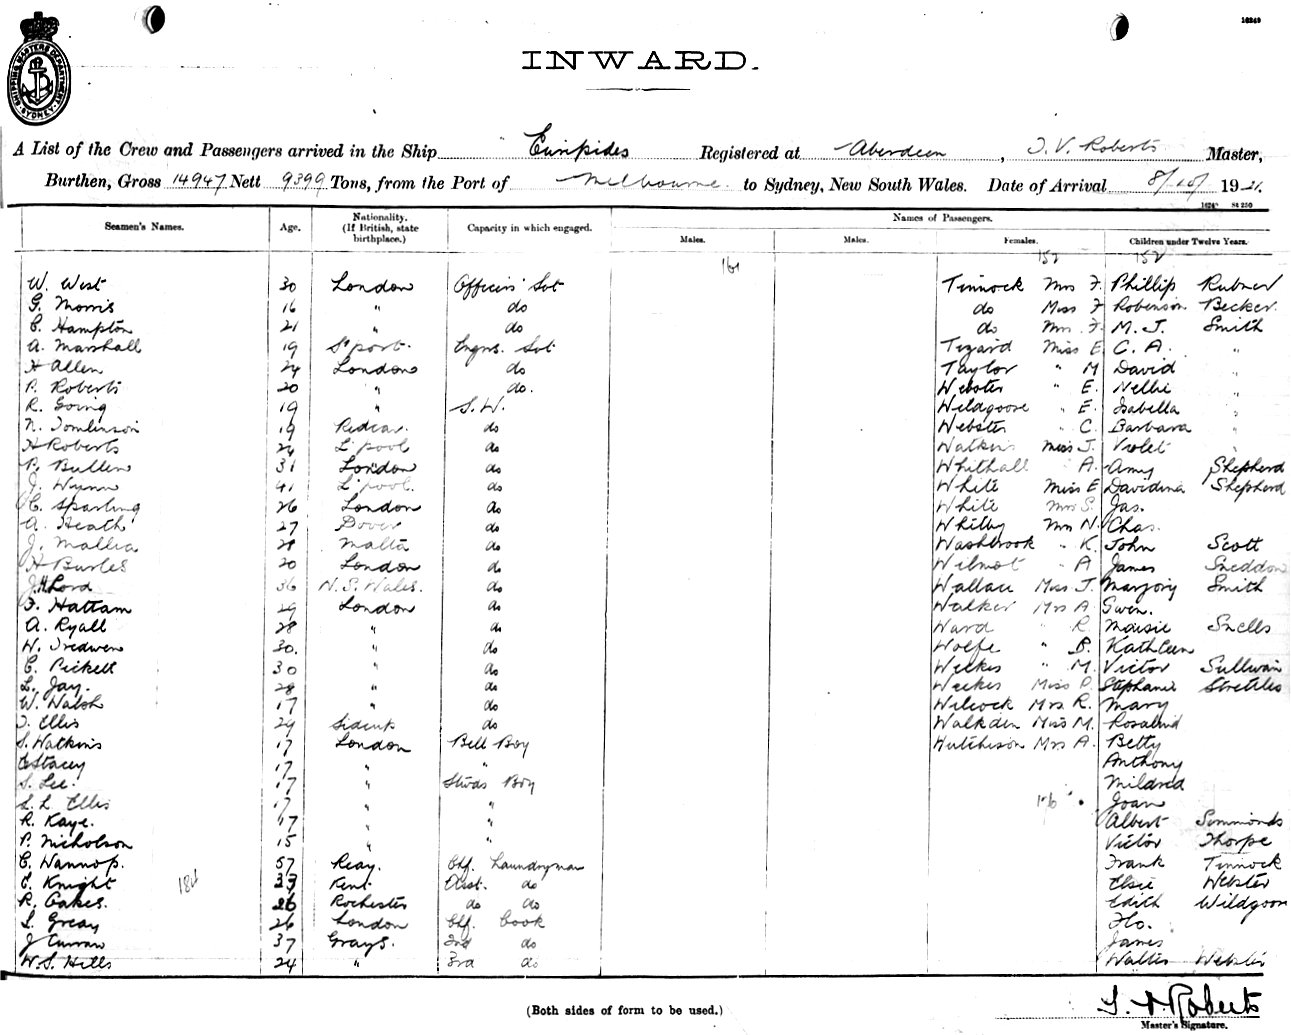 16249
SHIPPING MASTERS DEPARTMENT SYDNEY
INWARD.
A List of the Crew and Passengers arrived in the Ship Euripides Registered at Aberdeen, T. V. Roberts Master,
Burthen, Gross 14947 Nett 9399 Tons, from the Port of Melbourne to Sydney, New South Wales. Date of Arrival 8/10/ 1921.
St 250
Seamen's Names. Age. Nationality. (If British, state birthplace.) Capacity in which engaged. Names of Passengers.
Males. Males. Females. Children under Twelve Years.
161 152 152
W. West 30 London Officers' Svt Tinnock Mrs F. Phillip Rubner
G. Morris 16 " do do Miss F Robinson Becker.
E. Hampton 21 " do do Mrs. F. M. J. Smith
A. Marshall 19 S'port. Engrs. Svt Tizard Miss E C. A. "
H Allen 24 London do Taylor " M David
P. Roberts 20 " do. Webster " E. Nellie "
R. Going 19 " S.W. Wildgoose " E. Isabella "
N. Tomlinson 19 Redcar. do Webster " C. Barbara "
H Roberts 24 L'pool do Watkins Miss J. Violet "
P. Bullen 31 London do Whithall A. Amy Shepherd
J. Wynn 41 L'pool. do White Miss E Davidina Shepherd
C. Sparling 26 London do White Mrs S. Jas.
A. Heath 27 Dover do Whitby Mrs N. Chas.
J. Mallia 28 Malta do Washbrook " K. John Scott
H Burles 20 London do Wilmot " A James Sneddon
J.H. Lord 36 N. S. Wales. do Wallace Miss J. Marjory Smith
F. Hattam 29 London do Walker Mrs A. Gwen.
A. Ryall 28 " do Ward " R Maisie Snells
W. Tredwen 30. " do Wolfe " B. Kathleen
C. Pickett 30 " do Weekes " M. Victor Sullivan
L. Jay. 28 " do Weekes Miss P. Stephanie
W. Walsh 17 " do Wilcock Mrs R. Mary
T. Ellis 29 Sidcup do Walkden Miss M. Rosalind
S. Watkins 17 London Bell Boy Hutchison Mrs A. Betty
Stacey 17 " " Anthony
S. Lee. 17 " Stwds Boy Mildred
L. L. Ellis 17 " " 176 Joan
R. Kaye. 17 " " Albert Simmonds
P. Nicholson 15 " " Victor Thorpe
C. Wannop. 57 Reay. Chf. Laundryman Frank Tinnock
E. Knight 184 33 Kent Asst. do Elsie Webster
R. Oakes. 26 Rochester do do Edith Wildgoose
L. Greay 26 London Chf. Cook Flo.
J Curran 37 Grays. 2nd do James
W. S. Hills 24 " 3rd do Walter Webster
(Both sides of form to be used.)
T. V. Roberts
Master's Signature.